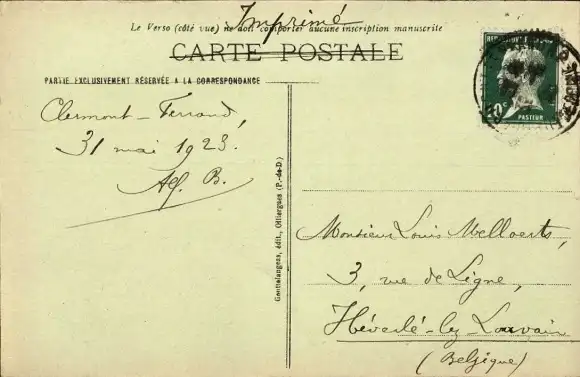 Imprimé
Le Verso (côté vue) ne doit comporter aucune inscription manuscrite
CARTE POSTALE
PARTIE EXCLUSIVEMENT RÉSERVÉE A LA CORRESPONDANCE
Clermont-Ferrand,
31 mai 1923.
Alf. B.
Gouttefangeas, édit., Olliergues (P.-de-D.)
PASTEUR
Monsieur Louis Mellaerts,
3, rue de Ligne,
Héverlé-lez-Louvain
(Belgique)